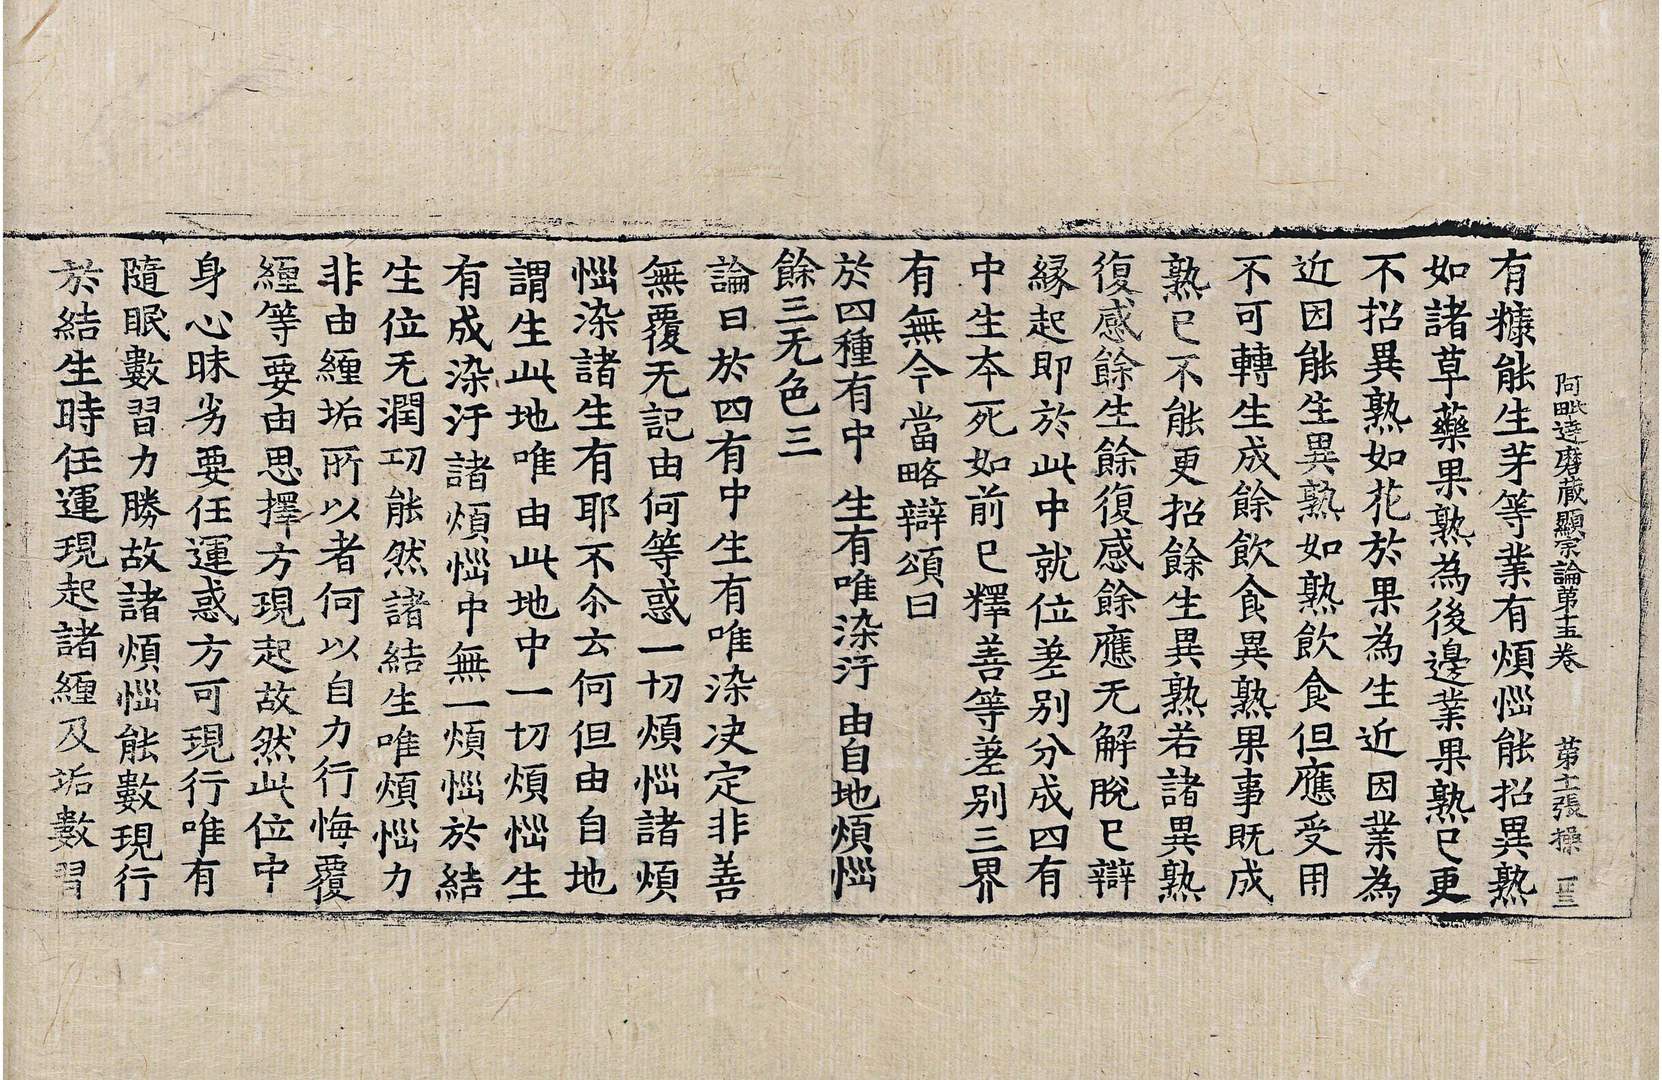 阿毗達磨藏顯宗論第十五卷　第十二張　操　一三三
有糠能生芽等業有煩惱能招異熟
如諸草藥果熟為後邊業果熟已更
不招異熟如花於果為生近因業為
近因能生異熟如熟飲食但應受用
不可轉生成餘飲食異熟果事既成
熟已不能更招餘生異熟若諸異熟
復感餘生餘復感餘應无解脫已辯
縁起即於此中就位差別分成四有
中生本死如前已釋善等差別三界
有無今當略辯頌曰
於四種有中　生有唯染汙　由自地煩惱
餘三无色三
論曰於四有中生有唯染决定非善
無覆无記由何等惑一切煩惱諸煩
惱染諸生有耶不尒云何但由自地
謂生此地唯由此地中一切煩惱生
有成染汙諸煩惱中無一煩惱於結
生位无潤功能然諸結生唯煩惱力
非由纏垢所以者何以自力行悔覆
纏等要由思擇方現起故然此位中
身心昧劣要任運惑方可現行唯有
隨眠數習力勝故諸煩惱能數現行
於結生時任運現起諸纏及垢數習